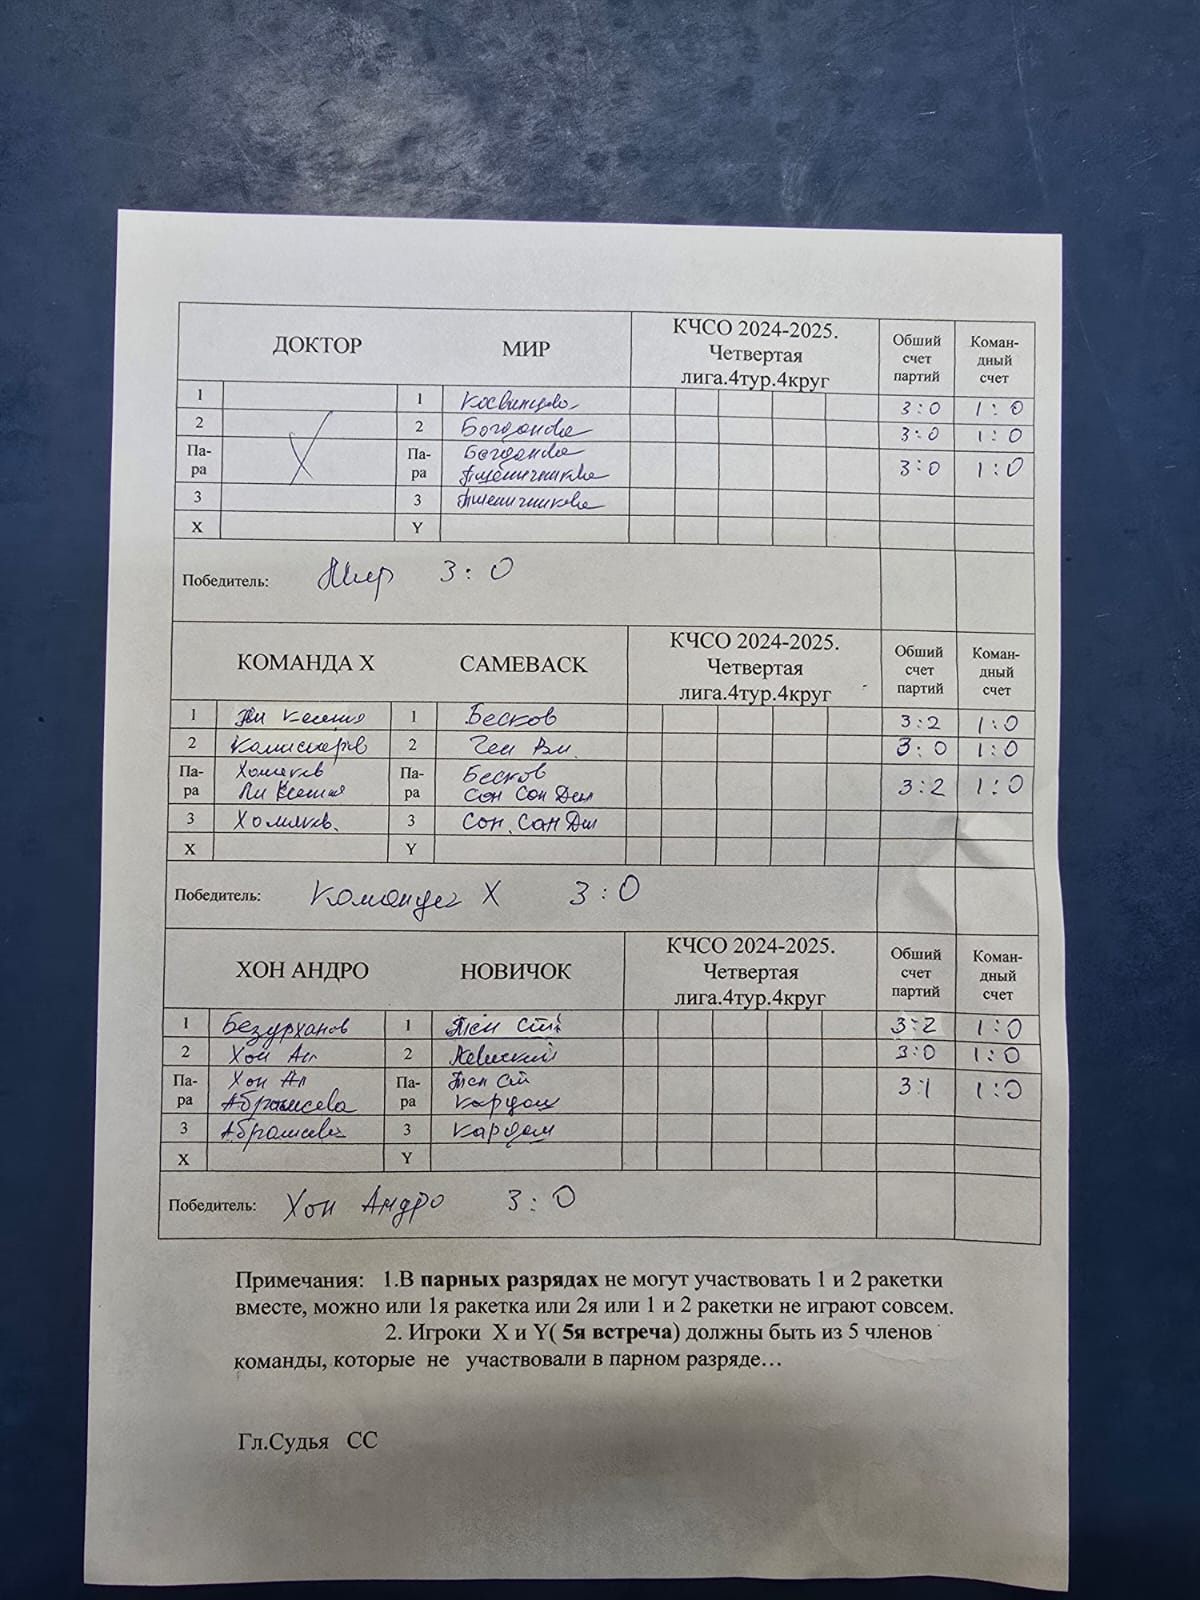 ДОКТОР МИР КЧСО 2024-2025. Четвертая лига.4тур.4круг Обший счет партий Коман-дный счет
1 1 3:0 1:0
2 2 Богданова 3:0 1:0
Па-ра Па-ра Богданова 3:0 1:0
Пшеничникова
3 3 Пшеничникова
X Y
Победитель: Мир 3:0
КОМАНДА Х CAMEBACK КЧСО 2024-2025. Четвертая лига.4тур.4круг Обший счет партий Коман-дный счет
1 Ли Ксения 1 Бесков 3:2 1:0
2 Комиссаров 2 Ген Вл. 3:0 1:0
Па-ра Хомяков Па-ра Бесков 3:2 1:0
Ли Ксения Сон Сан Дил
3 Хомяков. 3 Сон. Сан Дил
X Y
Победитель: Команда Х 3:0
ХОН АНДРО НОВИЧОК КЧСО 2024-2025. Четвертая лига.4тур.4круг Обший счет партий Коман-дный счет
1 Безурханов 1 Тен Ст. 3:2 1:0
2 Хон Ан 2 3:0 1:0
Па-ра Хон Ан Па-ра Тен Ст 3:1 1:0
3 3
X Y
Победитель: Хон Андро 3:0
Примечания: 1.В парных разрядах не могут участвовать 1 и 2 ракетки
вместе, можно или 1я ракетка или 2я или 1 и 2 ракетки не играют совсем.
2. Игроки X и Y( 5я встреча) должны быть из 5 членов
команды, которые не участвовали в парном разряде…
Гл.Судья СС